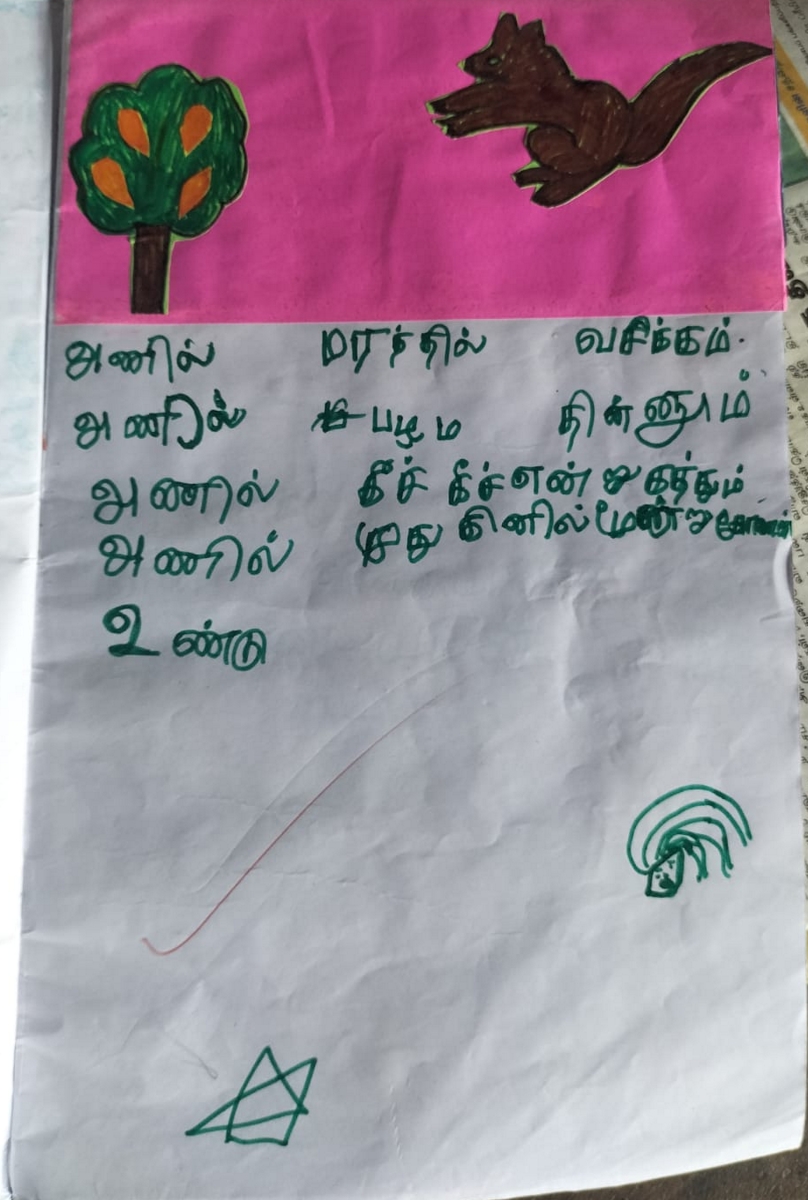 அணில் மரத்தில் வசிக்கம்.
அணில் பழம தின்னும்
அணில் கீச் கீச் என்று கத்தும்
அணில் முதுகினில் மூன்று கோடுகள்
உண்டு